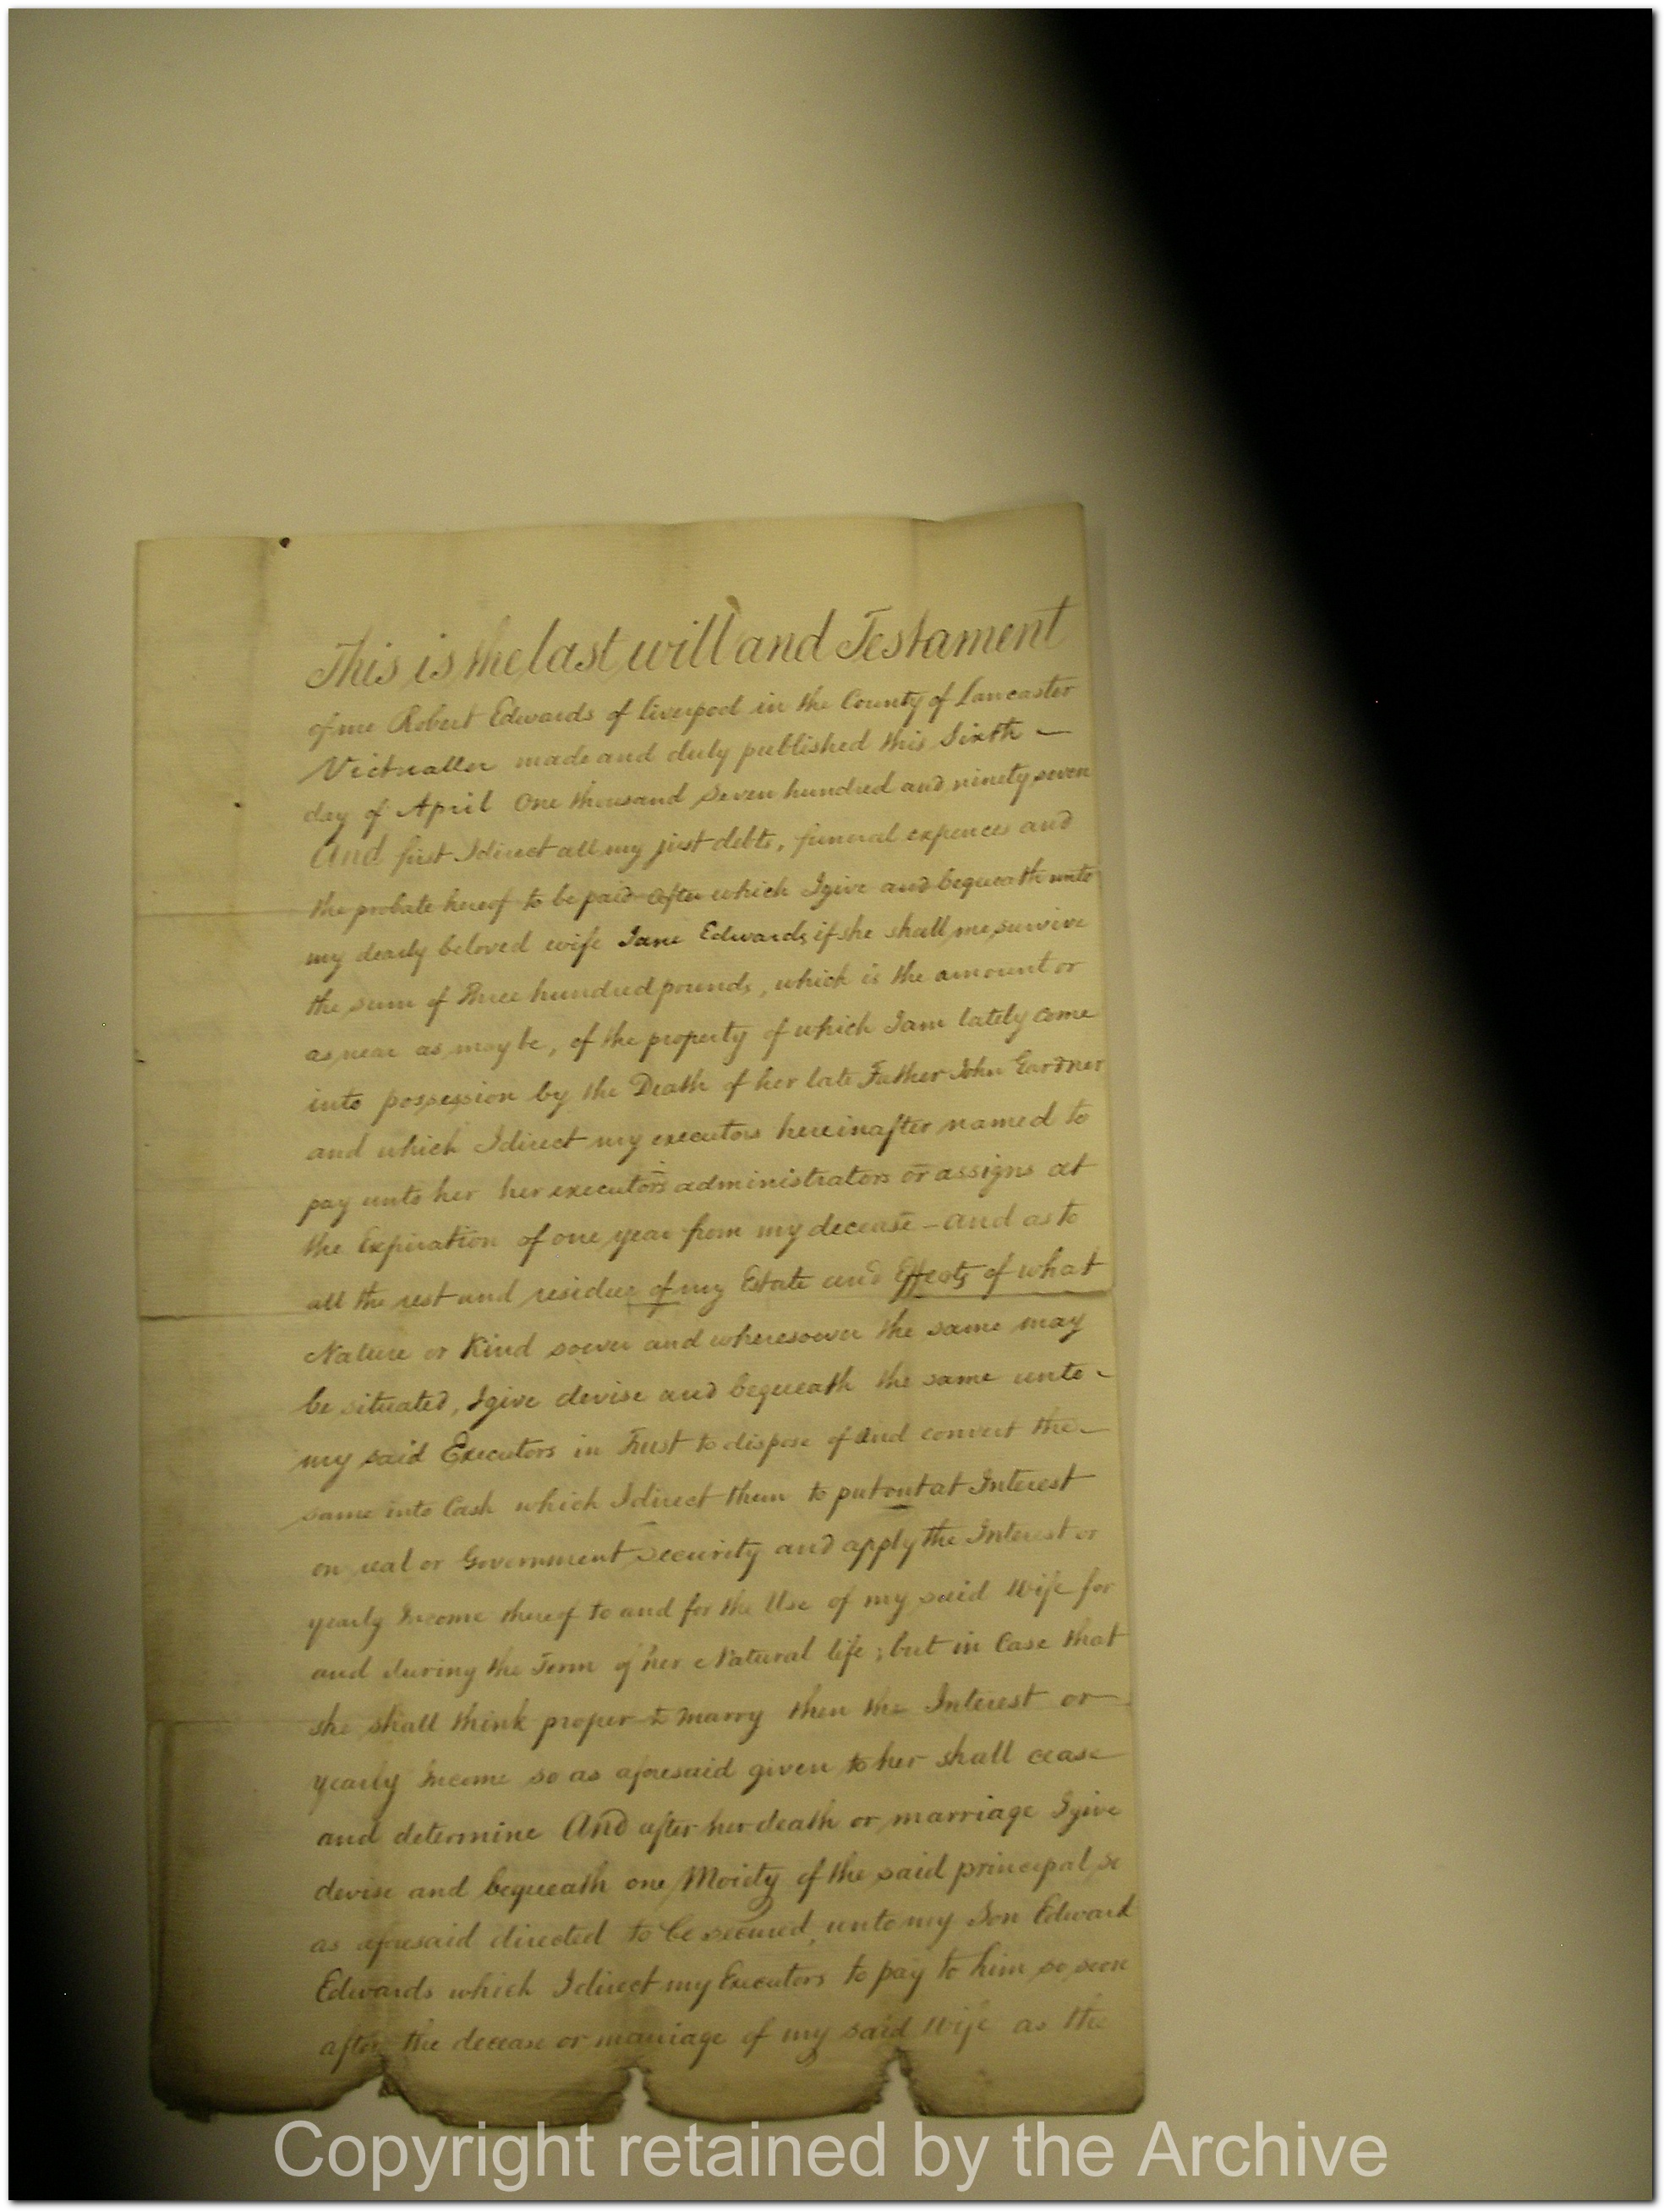 This is the last will and Testament
of me Robert Edwards of liverpool in the County of Lancaster
Victualler made and duly published this Sixth —
day of April One thousand Seven hundred and ninety seven
And first I direct all my just debts, funeral expences and
the probate hereof to be paid After which I give and bequeath unto
my dearly beloved wife Jane Edwards if she shall me survive
the sum of Three hundred pounds, which is the amount or
as near as may be, of the property of which I am lately come
into possession by the Death of her late Father John Gardner
and which I direct my executors hereinafter named to
pay unto her her executors administrators or assigns at
the Expiration of one year from my decease – and as to
all the rest and residue of my Estate and Effects of what
Nature or Kind soever and wheresoever the same may
be situated, I give devise and bequeath the same unto –
my said Executors in Trust to dispose of and convert the –
same into Cash which I direct them to put out at Interest
on real or Government Security and apply the Interest or
yearly Income thereof to and for the Use of my said Wife for
and during the Term of her Natural life; but in Case that
she shall think proper to marry then the Interest or —
yearly Income so as aforesaid given to her shall cease
and determine And after her death or marriage I give
devise and bequeath one Moiety of the said principal so
as aforesaid directed to be secured, unto my Son Edward
Edwards which I direct my Executors to pay to him so soon
after the decease or marriage of my said Wife as the
Copyright retained by the Archive